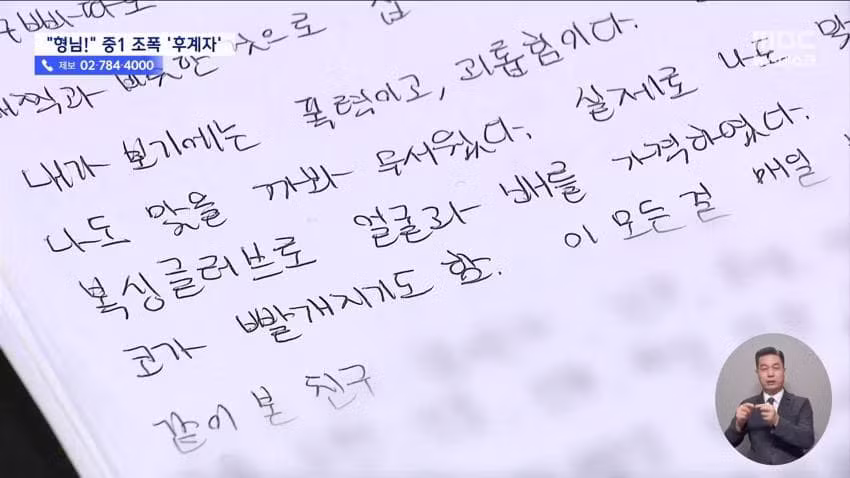 "형님!" 중1 조폭 '후계자'
제보 02-784-4000
MBC
비슷한 것으로
내가 보기에는 폭력이고, 괴롭힘이다.
나도 맞을 까봐 무서웠다. 실제로 나도
복싱글러브로 얼굴과 배를 가격하였다.
코가 빨개지기도 함. 이 모든걸 매일
같이 본 친구